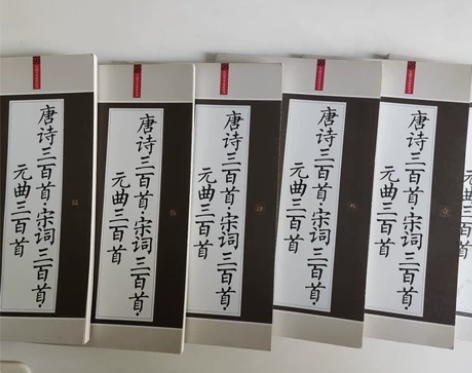 唐诗三百首·宋词三百首·
元曲三百首
唐诗三百首·宋词三百首·
元曲三百首
唐诗三百首·宋词三百首·
元曲三百首
唐诗三百首·宋词三百首·
元曲三百首
唐诗三百首·宋词三百首·
元曲三百首